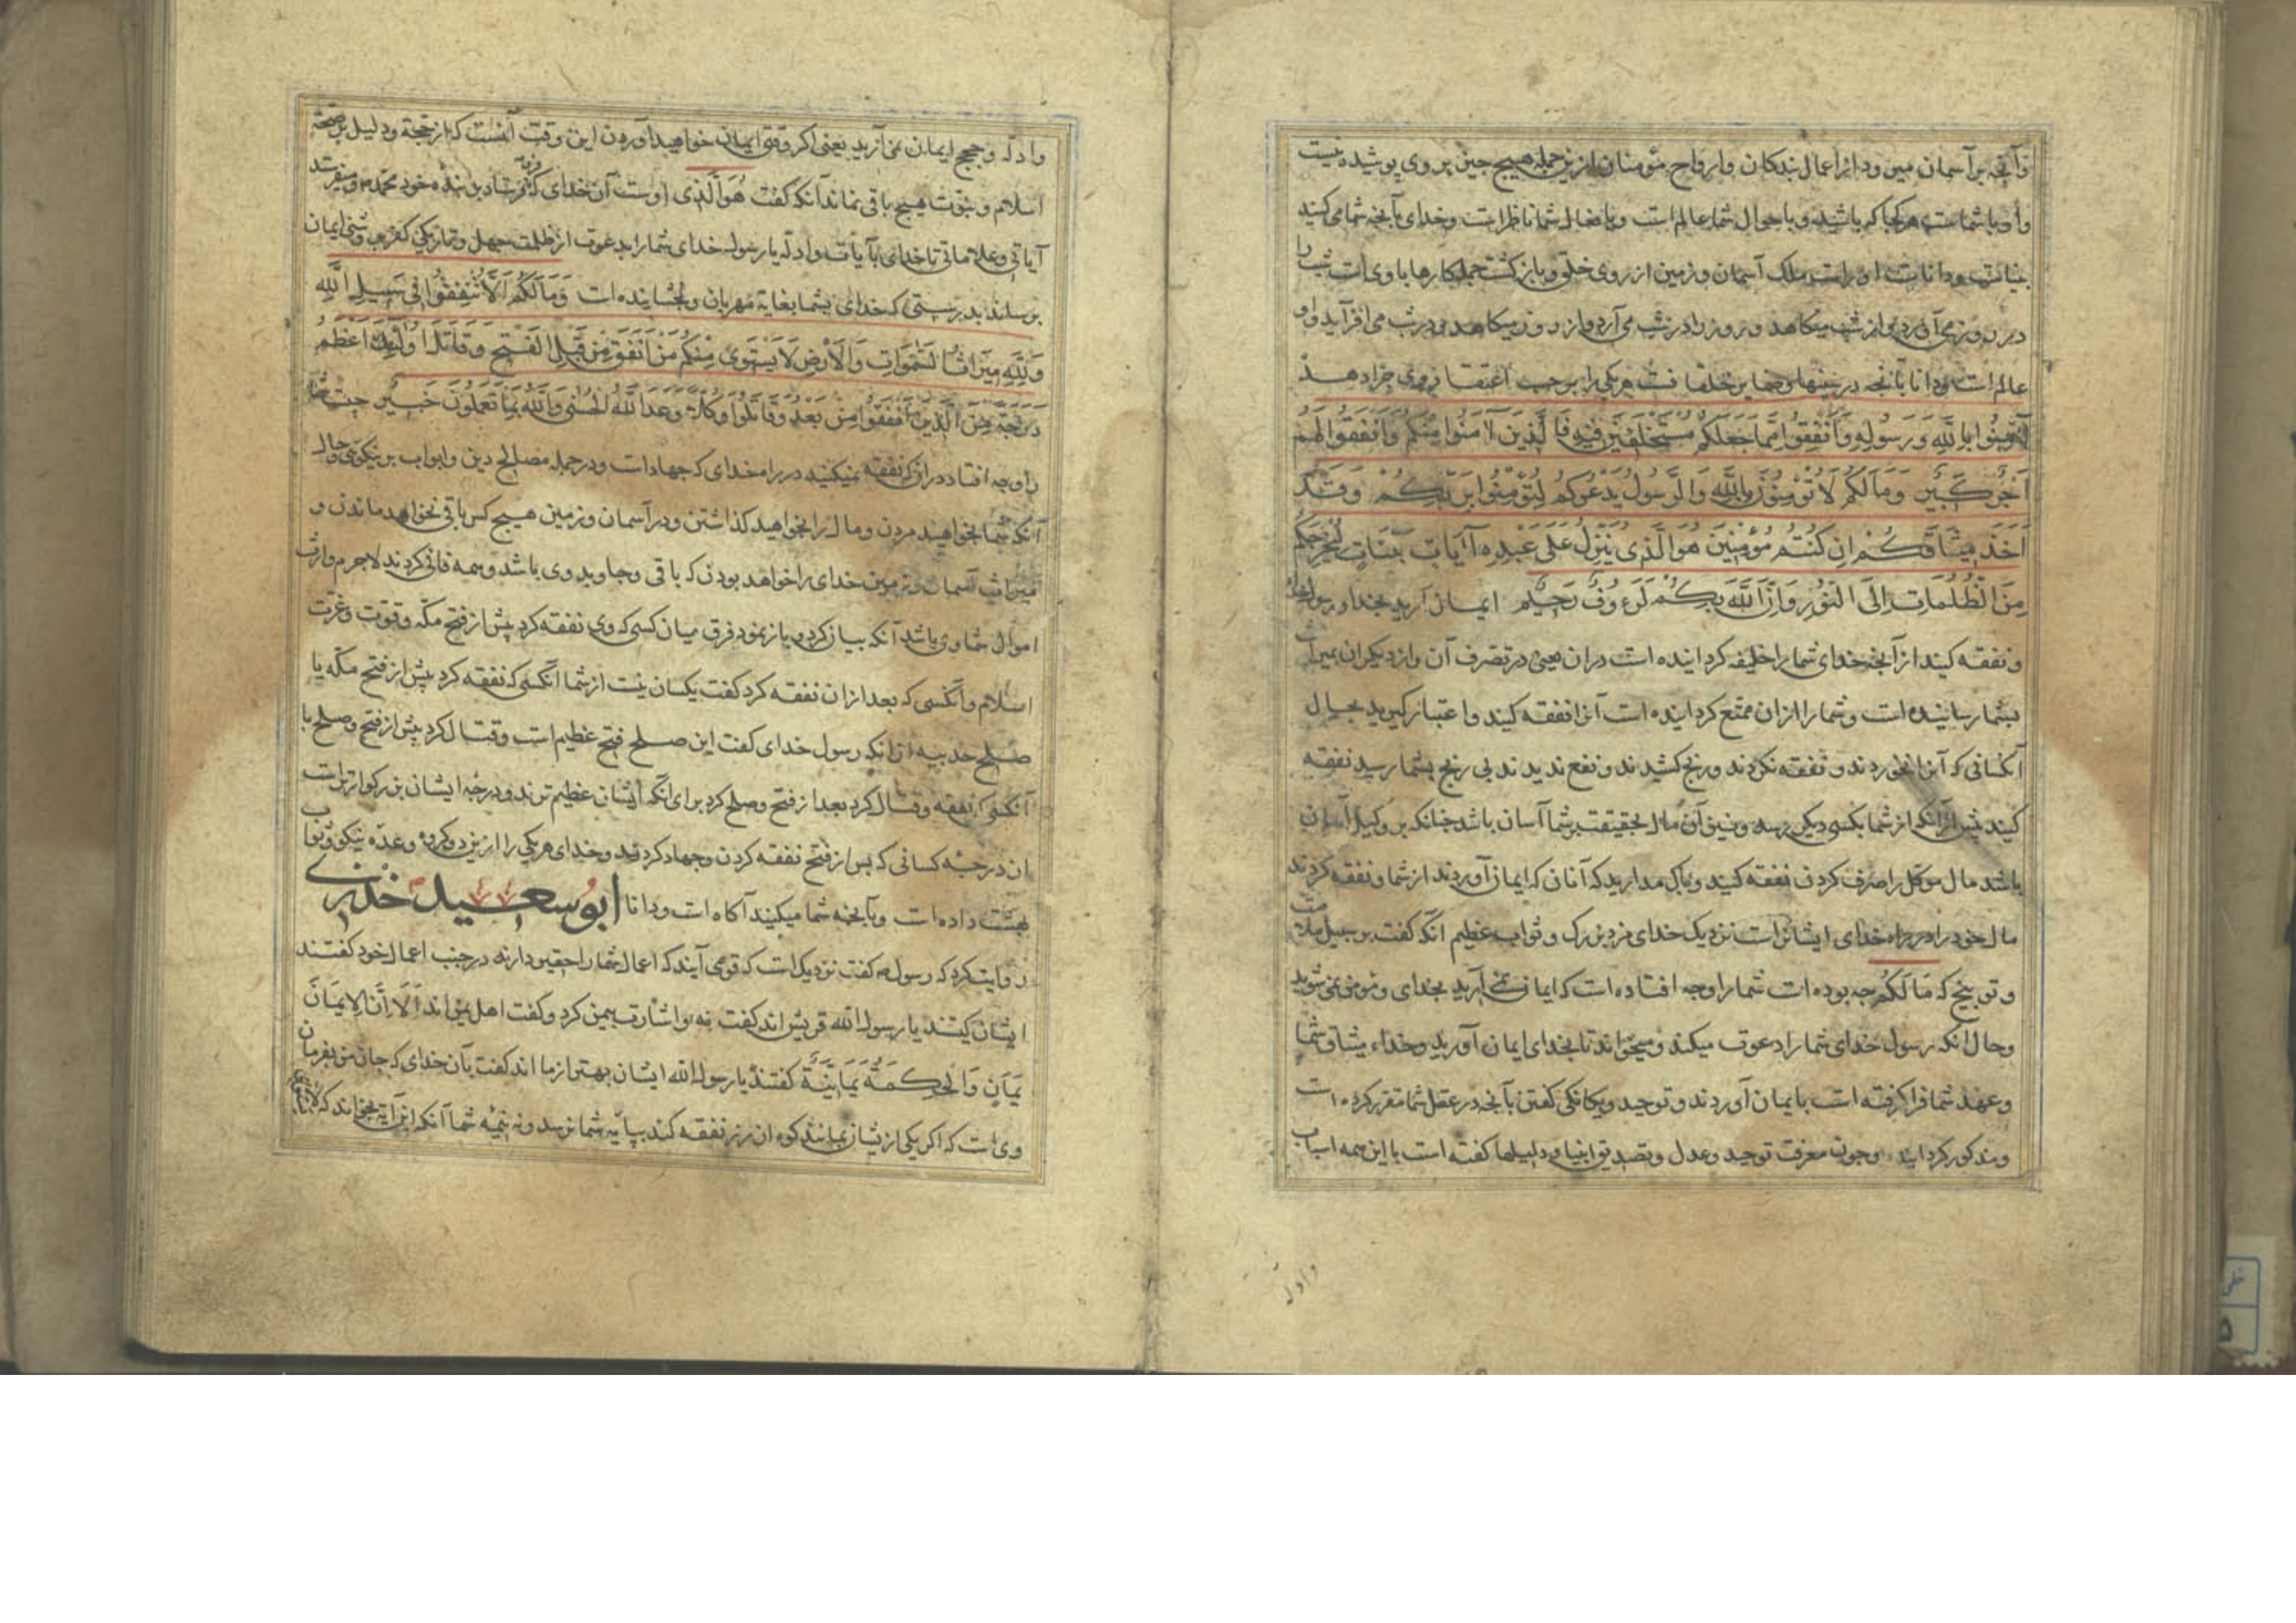 وآنچه بر آسمان میرود از اعمال بندکان وارواح مؤمنان ازین جمله هیچ چیز بروی پوشیده نیست
واو با شماست هر کجا که باشید وباحوال شما عالم است وبافعال شما ناظر است وخدای بآنچه شما می کنید
بیناست وداناست اوراست ملک آسمان وزمین از روی خلق وبازکشت جمله کارها با وی است شب را
در روز می آورد واز شب میکاهد وروز را در شب می آرد واز روز میکاهد ودر شب می افزاید واو
عالم است ودانا بآنچه در سینها خلقانست هر یکی را بر حسب اعتقاد وی جزا دهد
آمِنُوا بِاللَّهِ وَرَسُولِهِ وَأَنْفِقُوا مِمَّا جَعَلَكُمْ مُسْتَخْلَفِينَ فِيهِ فَالَّذِينَ آمَنُوا مِنْكُمْ وَأَنْفَقُوا لَهُمْ
أَجْرٌ كَبِيرٌ وَمَا لَكُمْ لَا تُؤْمِنُونَ بِاللَّهِ وَالرَّسُولُ يَدْعُوكُمْ لِتُؤْمِنُوا بِرَبِّكُمْ وَقَدْ
أَخَذَ مِيثَاقَكُمْ إِنْ كُنْتُمْ مُؤْمِنِينَ هُوَ الَّذِي يُنَزِّلُ عَلَى عَبْدِهِ آيَاتٍ بَيِّنَاتٍ لِيُخْرِجَكُمْ
مِنَ الظُّلُمَاتِ إِلَى النُّورِ وَإِنَّ اللَّهَ بِكُمْ لَرَءُوفٌ رَحِيمٌ ایمان آرید بخدا ورسول خدا
ونفقه کنید از آنچه خدای شما را خلیفه کردانیده است دران یعنی در تصرف آن واز دیکران بمیراث
بشما رسانیده است وشما را ازان ممتع کردانیده است آنرا نفقه کنید واعتبار کیرید بحال
آنکسانی که آنرا نخوردند ونفقه نکردند ورنج کشیدند ونفع ندیدند بی رنج بشما رسید نفقه
کنید پیش ازآنکه از شما بکسی دیکر رسد ونیز آن مال بحقیقت بر شما آسان باشد چنانکه بر وکیل آسان
باشد مال موکل را صرف کردن نفقه کنید وباک مدارید که آنان که ایمان آوردند از شما ونفقه کردند
مال خود را در راه خدای ایشانراست نزدیک خدای مزد بزرک وثواب عظیم آنکه کفت بر سبیل ملامت
وتوبیخ که مَا لَكُمْ چه بوده است شما را وچه افتاده است که ایمان نمی آرید بخدای ومؤمن نمی شوید
وحال آنکه رسول خدای شما را دعوت میکند ومیخواند تا بخدای ایمان آورید وخداء میثاق شما
وعهد شما فرا کرفته است بایمان آوردند وتوحید ویکانکی کفتن بآنچه در عقل شما مقرر کرده است
ومذکور کردانید وچون معرفت توحید وعدل وتصدیق انبیا ودلیلها کفته است با این همه اسباب
وادله
وادله وحجج ایمان نمی آرید یعنی اکر وقتی ایمان خواهید آوردن این وقت آنست که از حجة ودلیل بر صحة
اسلام ونبوت هیچ باقی نماند آنکه کفت هُوَ الَّذِي اوست آن خدای که فرو فرستاد بر بنده خود محمد م
آیاتی وعلاماتی تا خدای بآیات وادله یا رسول خدای شما را بدعوت از ظلمت جهل وتاریکی کفر بروشنی ایمان
برساند بدرستی که خدای بشما بغایة مهربان وبخشاینده است وَمَا لَكُمْ أَلَّا تُنْفِقُوا فِي سَبِيلِ اللَّهِ
وَلِلَّهِ مِيرَاثُ السَّمَوَاتِ وَالْأَرْضِ لَا يَسْتَوِي مِنْكُمْ مَنْ أَنْفَقَ مِنْ قَبْلِ الْفَتْحِ وَقَاتَلَ أُولَئِكَ أَعْظَمُ
دَرَجَةً مِنَ الَّذِينَ أَنْفَقُوا مِنْ بَعْدُ وَقَاتَلُوا وَكُلًّا وَعَدَ اللَّهُ الْحُسْنَى وَاللَّهُ بِمَا تَعْمَلُونَ خَبِيرٌ چیست شما
را وچه افتاد دران که نفقه نمیکنید در راه خدای که جهادات ودر جمله مصالح دین وابواب بر نیکوئی وحال
آنکه شما بخواهید مردن ومال را بخواهید کذاشتن ودر آسمان وزمین هیچ کس باقی نخواهد ماندن و
میراث آسمان وزمین خدای را خواهد بودن که باقی وجاوید وی باشد وهمه فانی کردند لاجرم وارث
اموال شما وی باشد آنکه بیان کرد وباز نمود فرق میان کسی که وی نفقه کرد پیش از فتح مکه وقوت وعزت
اسلام وآنکسی که بعد ازان نفقه کرد کفت یکسان نیست از شما آنکسی که نفقه کرد پیش از فتح مکه یا
صلح حدیبیه ازانکه رسول خدای کفت این صلح فتح عظیم است وقتال کرد پیش از فتح وصلح با
آنکسی که نفقه وقتال کرد بعد از فتح وصلح کرد برای آنکه ایشان عظیم ترند ودرجه ایشان بزرکوارتر است
از درجه کسانی که پس از فتح نفقه کردن وجهاد کردند وخدای هر یکی را ازین دو کروه وعده نیکو وثواب
بهشت داده است وبآنچه شما میکنید آکاه است ودانا ابو سعید خدری
روایت کرد که رسول م کفت نزدیک است که قومی آیند که اعمال شما را حقیر دارند در جنب اعمال خود کفتند
ایشان کیستند یا رسول الله قریش اند کفت نه واشارت بیمن کرد وکفت اهل یمن اند أَلَا إِنَّ الْإِيمَانَ
يَمَانٍ وَالْحِكْمَةُ يَمَانِيَّةٌ کفتند یا رسول الله ایشان بهتر از ما اند کفت بآن خدای که جان من بفرمان
وی است که اکر یکی از ایشان بمانند کوه از زر نفقه کند بپایه شما نرسد ونه بنیمه شما آنکه این آیة بخواند که